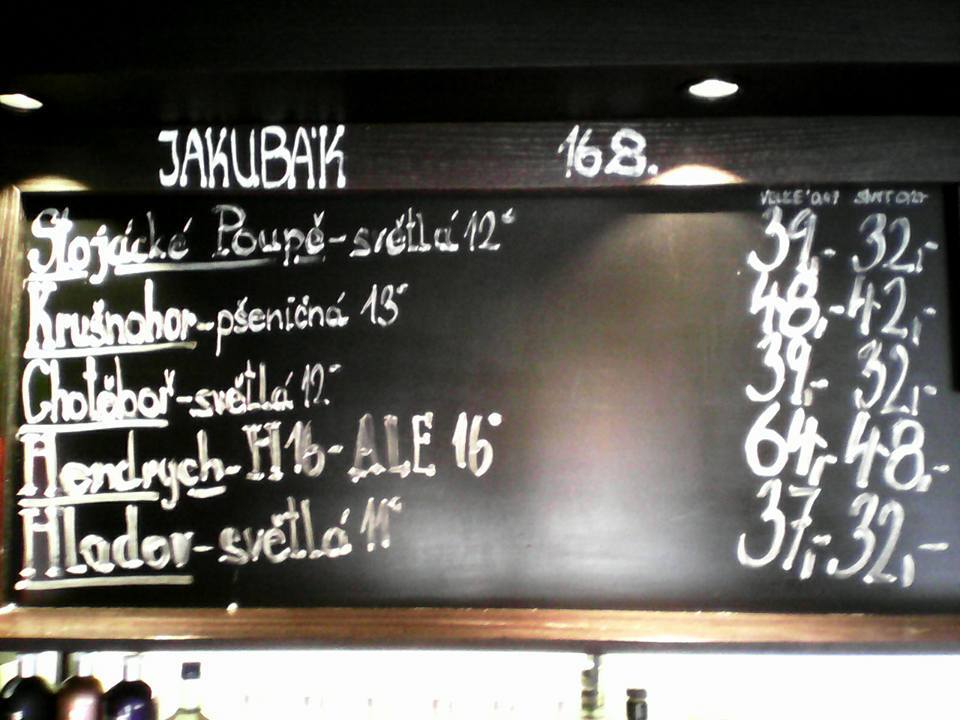 JAKUBÁK 16.8.
VELKÉ 0,4l
Stojácké Poupě - světlá 12° 39,- 32,-
Krušnohor - pšeničná 13° 48,- 42,-
Chotěboř - světlá 12° 39,- 32,-
Hendrych - H16 - ALE 16° 64,- 48,-
Hladov - světlá 11° 37,- 32,-